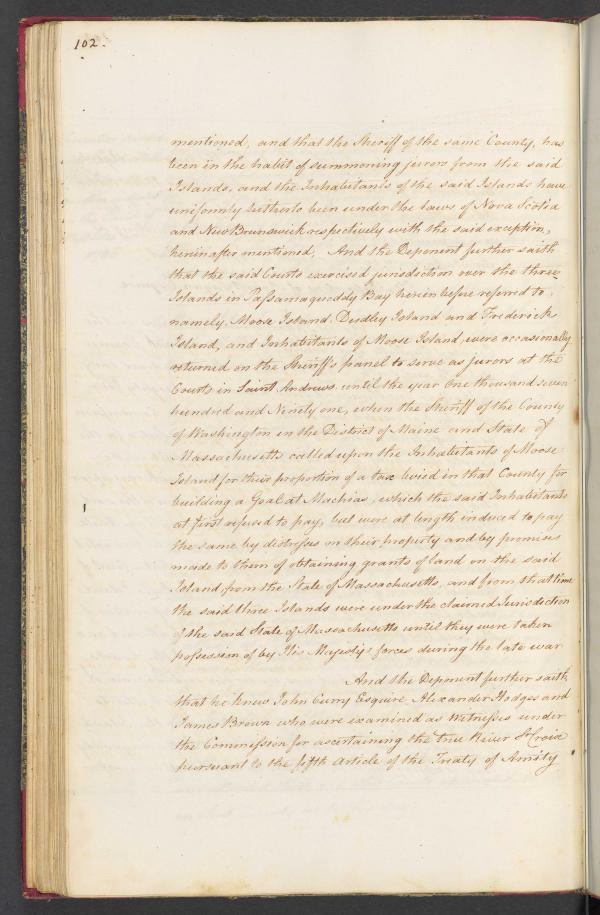 102.
mentioned, and that the Sheriff of the same County, has
been in the habit of summoning jurors from the said
Islands, and the Inhabitants of the said Islands have
uniformly hitherto been under the laws of Nova Scotia
and New Brunswick respectively with the said exception,
hereinafter mentioned, And the Deponent further saith
that the said Courts exercised jurisdiction over the three
Islands in Paſsamaquoddy Bay herein before referred to,
namely, Moose Island, Dudley Island and Frederick
Island, and Inhabitants of Moose Island were occasionally
returned on the Sheriff's panel to serve as jurors at the
Courts in Saint Andrews until the year One thousand seven
hundred and Ninety one, when the Sheriff of the County
of Washington in the District of Maine and State of
Massachusetts called upon the Inhabitants of Moose
Island for their proportion of a tax levied in that County for
building a Goal at Machias, which the said Inhabitants
at first refused to pay, but were at length induced to pay
the same by distreſses on their property and by promises
made to them of obtaining grants of land on the said
Island from the State of Massachusetts, and from that time
the said three Islands were under the claimed Jurisdiction
of the said State of Massachusetts until they were taken
poſsession of by His Majesty's forces during the late war
And the Deponent further saith,
that he knew John Curry Esquire, Alexander Hodges and
James Brown who were examined as Witneſses under
the Commiſsion for ascertaining the true River St Croix
pursuant to the fifth Article of the Treaty of Amity